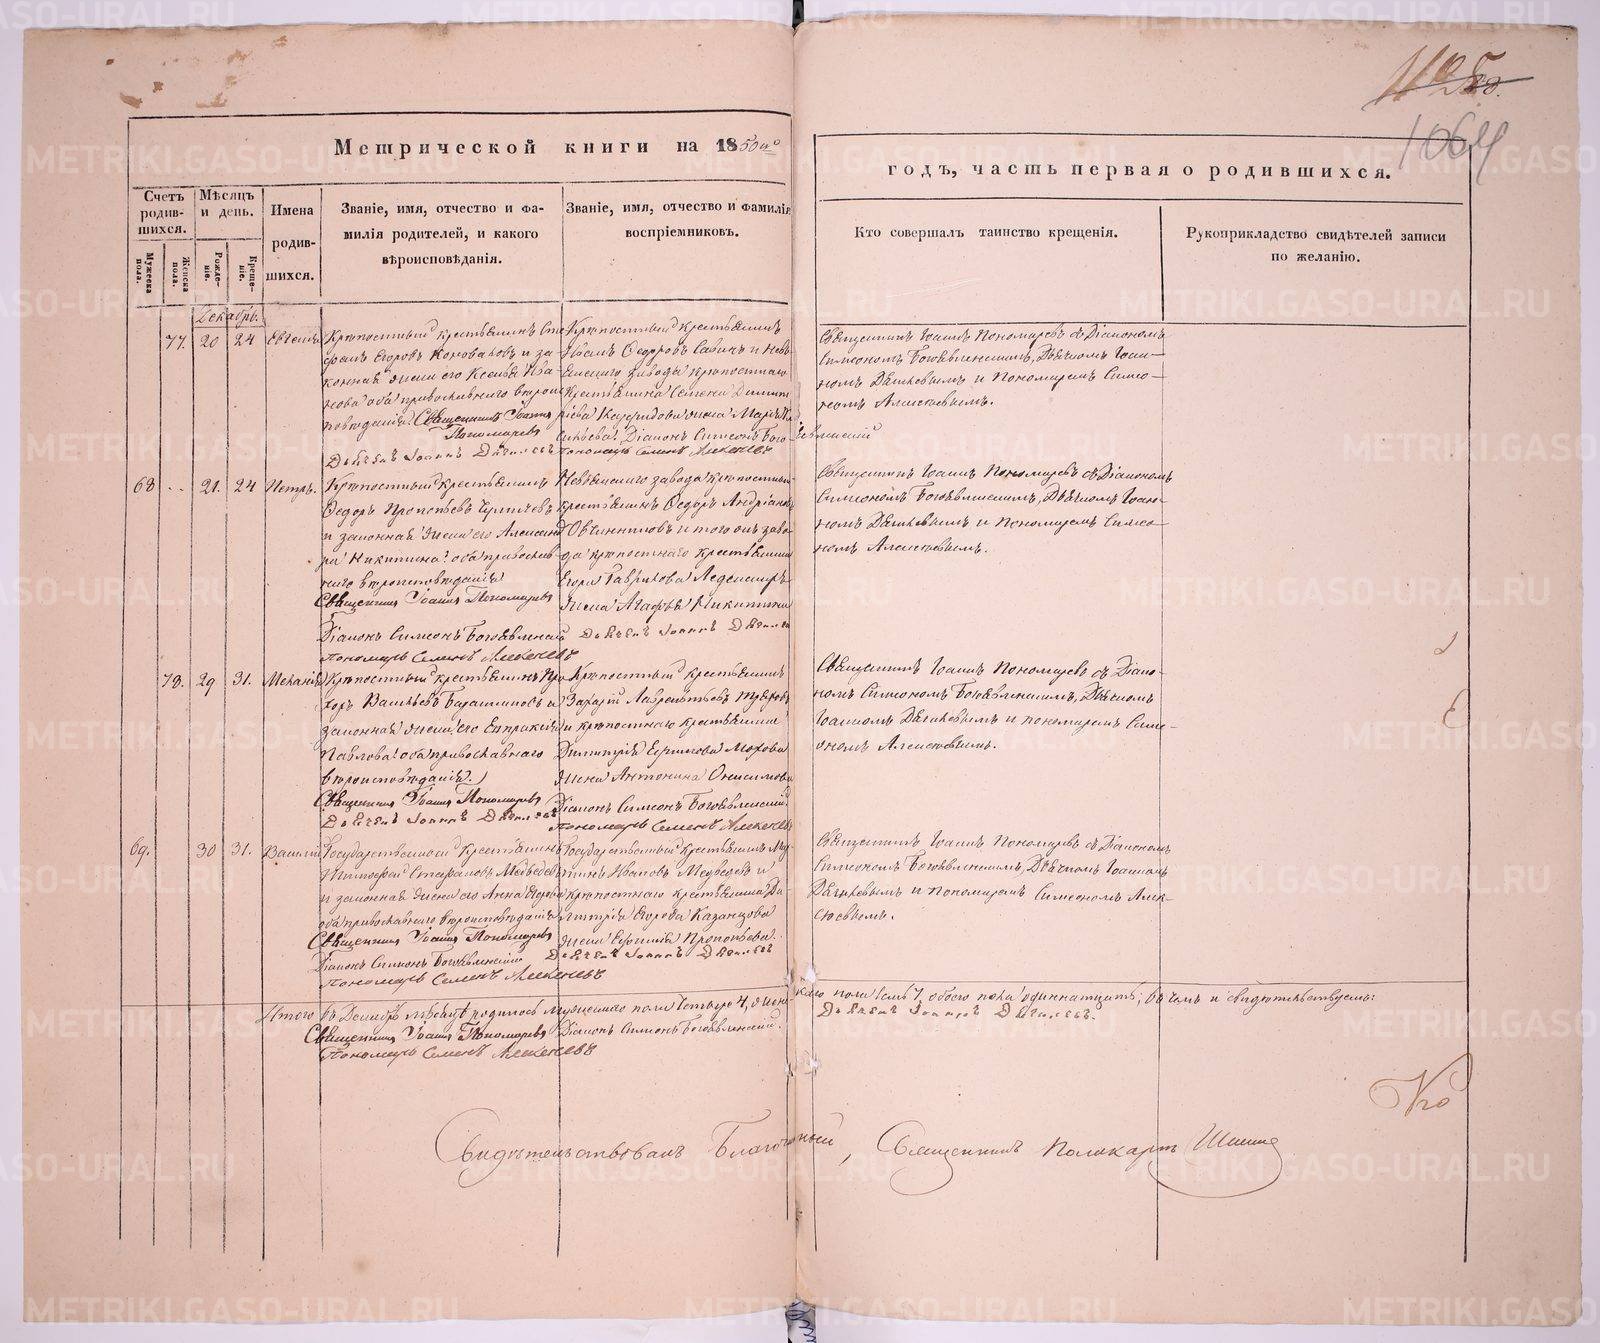 Метрической книги на 1850й
годъ, часть первая о родившихся.
1064
Счетъ родив-
шихся.
Мѣсяцъ
и день.
Имена
родив-
шихся.
Званіе, имя, отчество и фа-
милія родителей, и какого
вѣроисповѣданія.
Званіе, имя, отчество и фамилія
воспріемниковъ.
Кто совершалъ таинство крещенія.
Рукоприкладство свидѣтелей записи
по желанію.
Мужеска
пола.
Женска
пола.
Рожде-
ніе.
Креще-
ніе.
Декабрь.
77. 20 24
Крѣпостный крестьянинъ Сте-
фанъ Егоровъ Коноваловъ и за-
конная жена его Ксенья Ива-
нова оба православнаго вѣрои-
повѣданія. Священникъ Іоаннъ
Пономаревъ
Дьячекъ Іоаннъ
Крѣпостный крестьянинъ
Иванъ Ѳедоровъ Савинъ и Невь-
янскаго завода крѣпостнаго
крестьянина Семена Димит-
ріева жена Марѳа
Діаконъ Симеонъ Богоявленскій
Пономарь Семенъ Алексеевъ
Священникъ Іоаннъ Пономаревъ съ Діакономъ
Симеономъ Богоявленскимъ, Дьячкомъ Іоан-
номъ и Пономаремъ Симео-
номъ Алексѣевымъ.
68 .. 21. 24 Петръ.
Крѣпостный крестьянинъ
Ѳедоръ Прокопьевъ
и законная жена его Александ
ра Никитина оба православ-
наго вѣроисповѣданія
Священникъ Іоаннъ Пономаревъ
Діаконъ Симеонъ Богоявленскій
Пономарь Семенъ Алексеевъ
Невьянскаго завода крѣпостный
крестьянинъ Ѳедоръ Андріановъ
Овчинниковъ и того жъ заво-
да крѣпостнаго крестьянина
Егора Гаврилова
жена Агафья Никитина
Дьячекъ Іоаннъ
Священникъ Іоаннъ Пономаревъ съ Діакономъ
Симеономъ Богоявленскимъ, Дьячкомъ Іоан-
номъ и Пономаремъ Симео-
номъ Алексѣевымъ.
78. 29 31. Меланія
Крѣпостный крестьянинъ Про-
хоръ Васильевъ и
законная жена его Евпраксія
Павлова оба православнаго
вѣроисповѣданія.
Священникъ Іоаннъ Пономаревъ
Дьячекъ Іоаннъ
Крѣпостный крестьянинъ
Захарій Лаврентьевъ
и крѣпостнаго крестьянина
Димитрія Ефимова Мохова
жена Антонина Онисимова
Діаконъ Симеонъ Богоявленскій
Пономарь Семенъ Алексеевъ
Священникъ Іоаннъ Пономаревъ съ Діако-
номъ Симеономъ Богоявленскимъ, Дьячкомъ
Іоанномъ и пономаремъ Симе-
ономъ Алексѣевымъ.
69. 30 31. Василій
Государственный крестьянинъ
Тимофей Стефановъ Медведевъ
и законная жена его Анна
оба православнаго вѣроисповѣданія
Священникъ Іоаннъ Пономаревъ
Діаконъ Симеонъ Богоявленскій
Пономарь Семенъ Алексеевъ
Государственный крестьянинъ
Ивановъ Медведевъ и
крѣпостнаго крестьянина Ди-
митрія Егорова Казанцова
жена Прокопьева
Дьячекъ Іоаннъ
Священникъ Іоаннъ Пономаревъ съ Діакономъ
Симеономъ Богоявленскимъ, Дьячкомъ Іоанномъ
и Пономаремъ Симеономъ Алек-
сѣевымъ.
Итого въ Декабрѣ мѣсяцѣ родилось мужескаго пола четыре 4, женс-
каго пола семь 7, обоего пола одиннатцать, въ чемъ и свидѣтельствуемъ:
Священникъ Іоаннъ Пономаревъ Діаконъ Симеонъ Богоявленскій.
Дьячекъ Іоаннъ
Пономарь Семенъ Алексеевъ
Свидѣтельствовалъ Благочинный, Священникъ Поликарпъ
METRIKI.GASO-URAL.RU